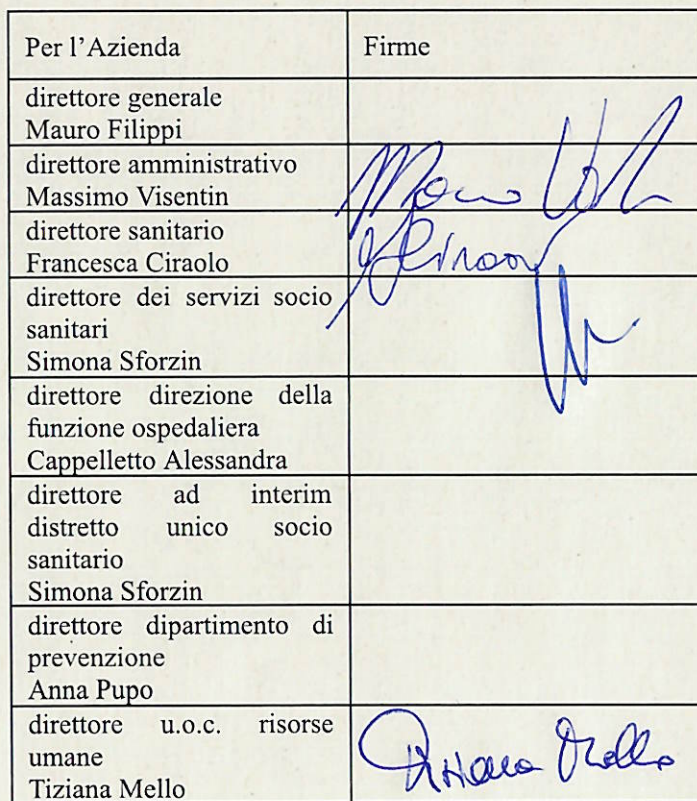 Per l'Azienda Firme
direttore generale
Mauro Filippi
direttore amministrativo
Massimo Visentin
direttore sanitario
Francesca Ciraolo
direttore dei servizi socio
sanitari
Simona Sforzin
direttore direzione della
funzione ospedaliera
Cappelletto Alessandra
direttore ad interim
distretto unico socio
sanitario
Simona Sforzin
direttore dipartimento di
prevenzione
Anna Pupo
direttore u.o.c. risorse
umane
Tiziana Mello
Tiziana Mello